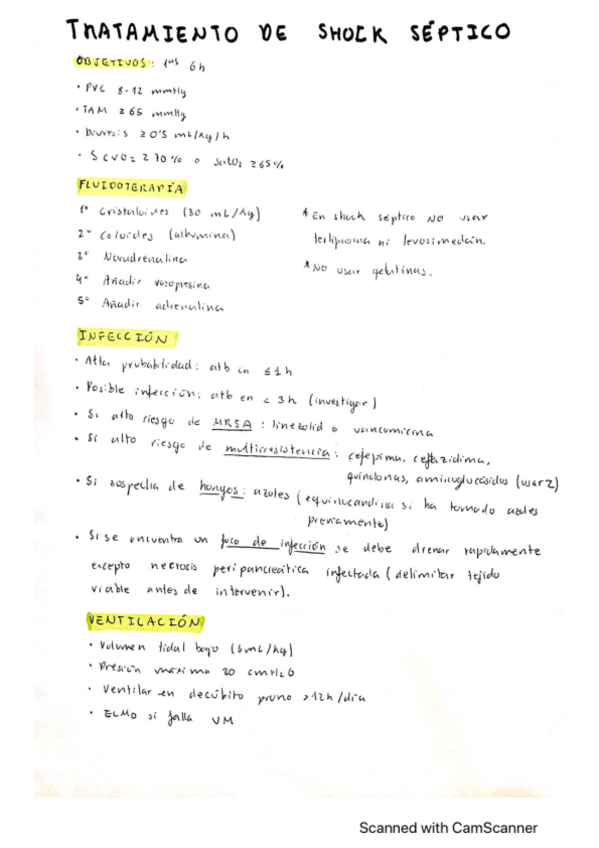 TRATAMIENTO DE SHOCK SÉPTICO
OBJETIVOS: 1as 6h
· PVC 8-12 mmHg
· TAM ≥65 mmHg
· Diuresis ≥0'5 mL/Kg/h
· ScvO2 ≥70% o SatO2 ≥65%
FLUIDOTERAPÍA
1º Cristaloides (30 mL/Kg)
2º Coloides (albumina)
3º Noradrenalina
4º Añadir vasopresina
5º Añadir adrenalina
* En shock séptico NO usar
terlipresina ni levosimedán.
* No usar gelatinas.
INFECCIÓN
· Alta probabilidad: atb en ≤1h
· Posible infección: atb en <3h (investigar)
· Si alto riesgo de MRSA: linezolid o vancomicina
· Si alto riesgo de multirresistencia: cefepima, ceftazidima,
quinolonas, aminoglucósidos (usar 2)
· Si sospecha de hongos: azoles (equinocandina si ha tomado azoles
previamente)
· Si se encuentra un foco de infección se debe drenar rapidamente
excepto necrosis peripancreática infectada (delimitar tejido
viable antes de intervenir).
VENTILACIÓN
· Volumen tidal bajo (6mL/Kg)
· Presión máxima 30 cmH2O
· Ventilar en decúbito prono >12h/día
· ECMO si falla VM
Scanned with CamScanner